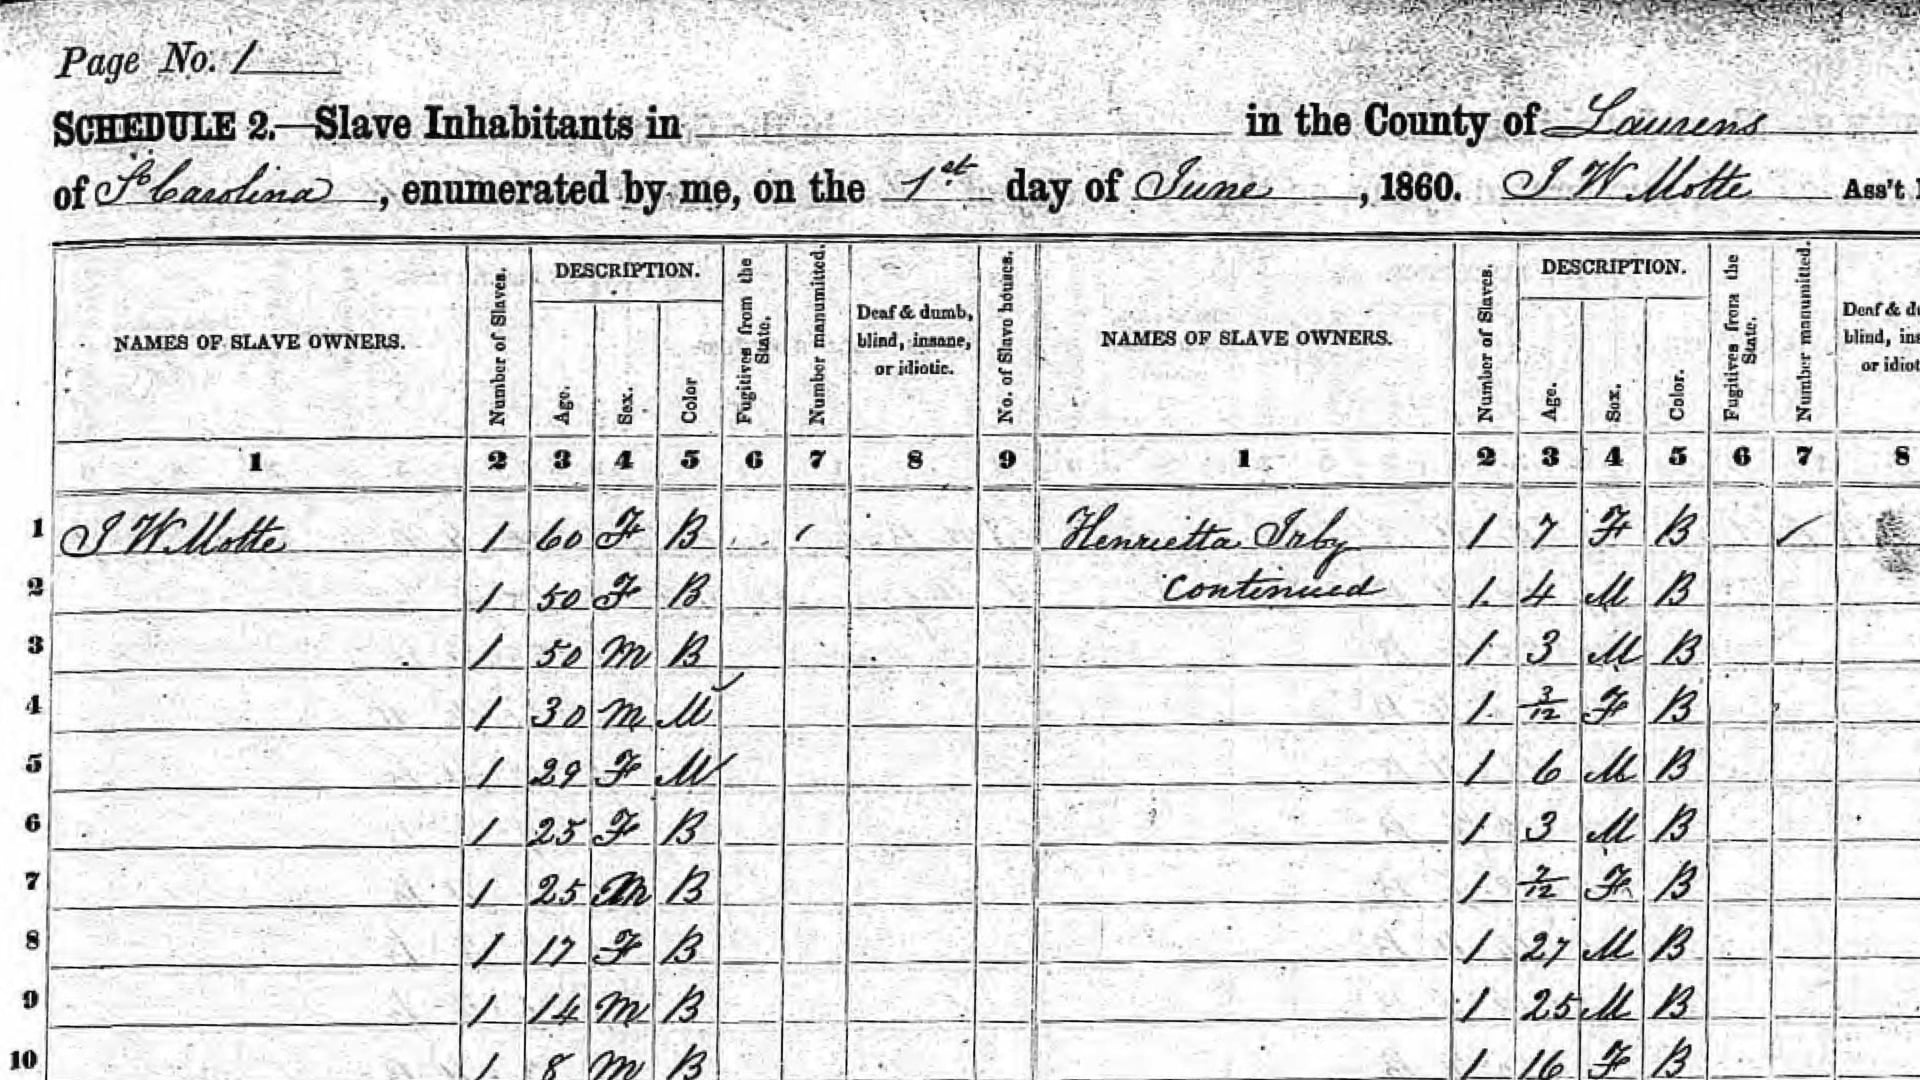 Page No. 1
SCHEDULE 2.—Slave Inhabitants in in the County of Laurens
of So Carolina, enumerated by me, on the 1st day of June, 1860. J W Motte Ass't
NAMES OF SLAVE OWNERS. Number of Slaves. DESCRIPTION. Age. Sex. Color Fugitives from the State. Number manumitted. Deaf & dumb, blind, insane, or idiotic. No. of Slave houses. NAMES OF SLAVE OWNERS. Number of Slaves. DESCRIPTION. Age. Sex. Color. Fugitives from the State. Number manumitted. Deaf & blind, or
1 2 3 4 5 6 7 8 9 1 2 3 4 5 6 7 8
1 J W Motte 1 60 F B Henrietta Irby 1 7 F B
2 1 50 F B Continued 1 4 M B
3 1 50 M B 1 3 M B
4 1 30 M M 1 3/12 F B
5 1 29 F M 1 6 M B
6 1 25 F B 1 3 M B
7 1 25 M B 1 F B
8 1 17 F B 1 27 M B
9 1 14 M B 1 25 M B
10 1 8 M B 1 16 F B